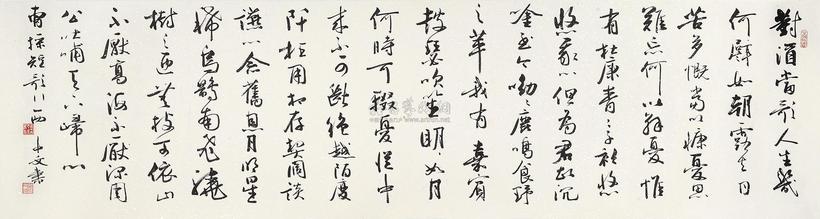 對酒當歌人生幾
何譬如朝露去日
苦多慨當以慷憂思
難忘何以解憂惟
有杜康青〻子衿悠
悠我心但為君故沉
吟至今呦〻鹿鳴食野
之苹我有嘉賓
鼓瑟吹笙明〻如月
何時可輟憂從中
來不可斷絕越陌度
阡枉用相存契闊談
讌心念舊恩月明星
稀烏鵲南飛繞
樹三匝無枝可依山
不厭高海不厭深周
公吐哺天下歸心
曹操短歌行 中文書